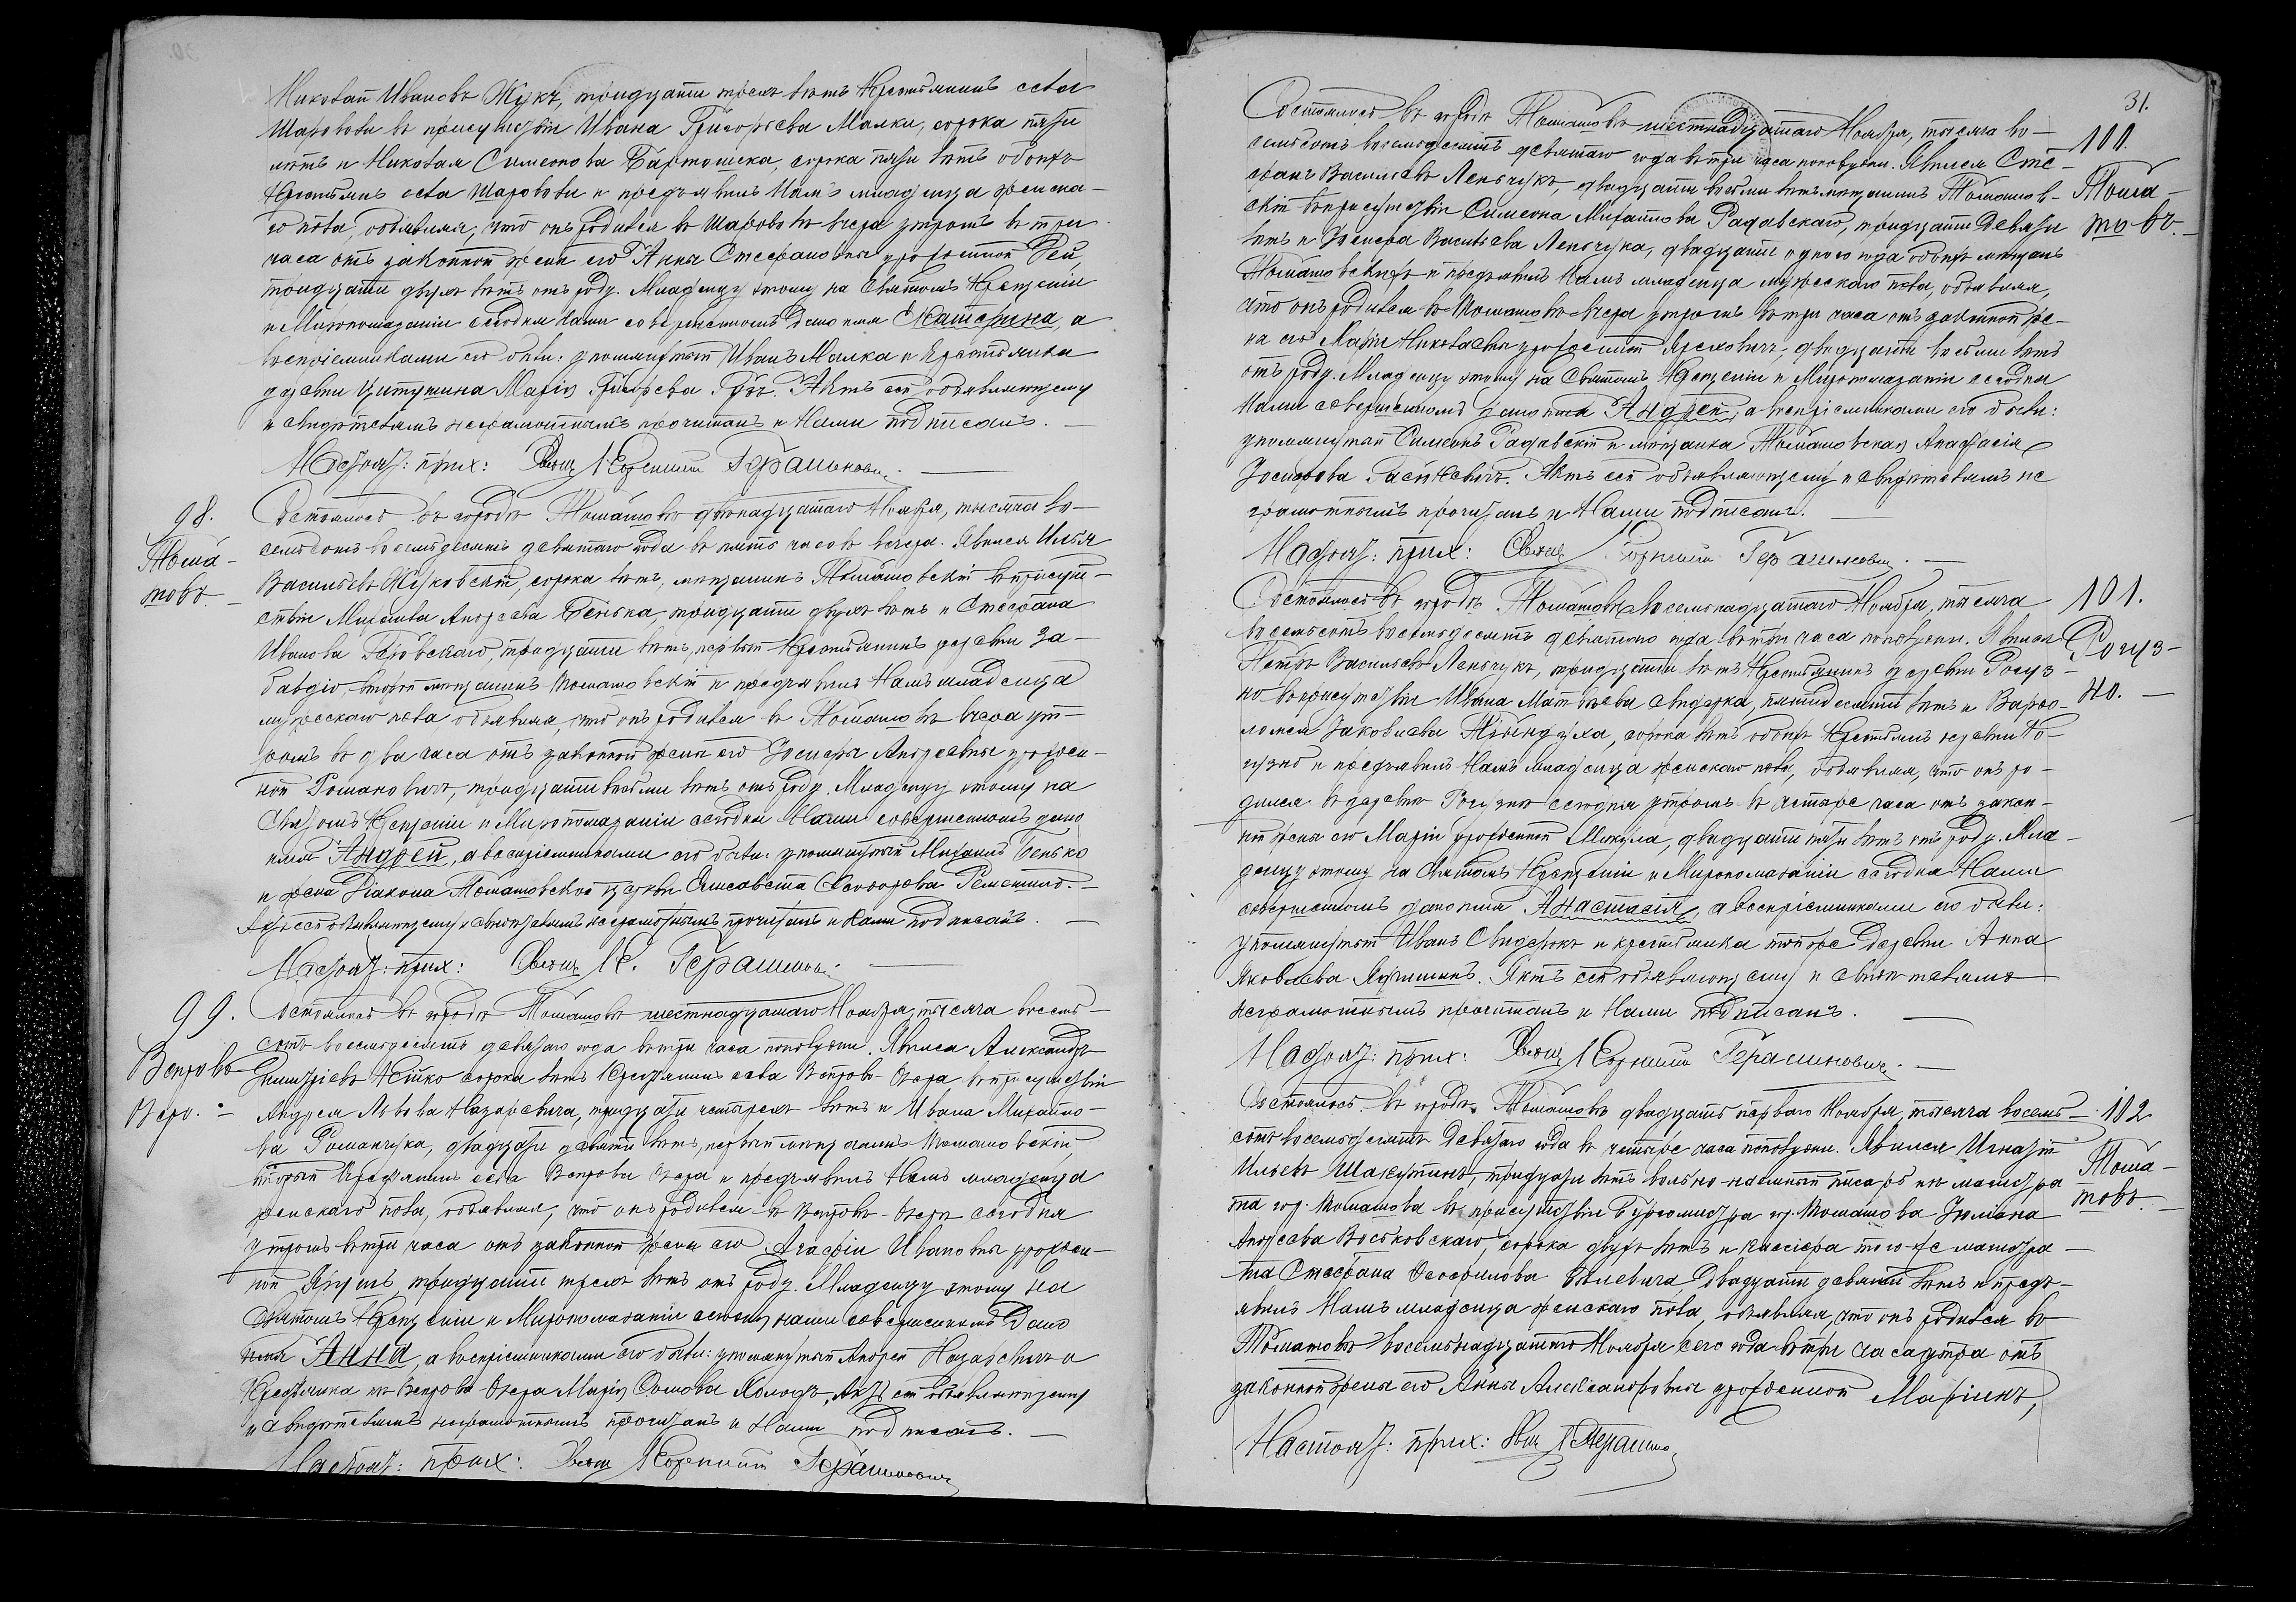 Николай Ивановъ Жукъ, тридцати трехъ лѣтъ крестьянинъ села
Шароволи въ присутствіи Ивана Григорьева Малки, сорока пяти
лѣтъ и Николая Симеонова Бартошека, сорока пяти лѣтъ обоихъ
крестьянъ села Шароволи и предъявилъ Намъ младенца женска-
го пола, объявляя, что онъ родился въ Шароволѣ вчера утромъ въ три
часа отъ законной жены его Анны Стефановны урожденной
тридцати двухъ лѣтъ отъ роду. Младенцу этому на Святомъ Крещеніи
и Миропомазаніи сегодня Нами совершенномъ дано имя Екатерина, а
воспріемниками его были: упомянутый Иванъ Малка и крестьянка
деревни Марія Григорьева. Актъ сей объявляющему
и свидѣтелямъ неграмотнымъ прочитанъ и Нами подписанъ. —
Настоят: прих: Свящ Корнилій Герасимович. —
98.
Тома-
шовъ. —
Состоялось въ городѣ Томашовѣ двѣнадцатаго Ноября, тысяча во-
семьсотъ восемьдесятъ девятаго года въ пять часовъ вечера. Явился Илья
Васильевъ Жуковскій, сорока лѣтъ, мѣщанинъ Томашовскій въ присут-
ствіи Михаила Андреева Бенька, тридцати двухъ лѣтъ и Стефана
Иванова Геровскаго, тридцати лѣтъ, первый крестьянинъ деревни За-
второй мѣщанинъ Томашовскій и предъявилъ Намъ младенца
мужескаго пола объявляя, что онъ родился въ Томашовѣ вчера ут-
ромъ въ два часа отъ законной жены его Іосифы Андреевны урожден-
ной Романовичъ, тридцати восьми лѣтъ отъ роду. Младенцу этому на
Святомъ Крещеніи и Миропомазаніи сегодня Нами совершенномъ дано
имя Андрей, а воспріемниками его были: упомянутый Михаилъ Бенько
и жена Діакона Томашовской церкви Елисавета Ѳеодорова. —
Актъ сей объявляющему и свидѣтелямъ неграмотнымъ прочитанъ и Нами подписанъ. —
Настоят: прих: Свящ К. Герасимов. —
99.
Вепрово
Озеро. —
Состоялось въ городѣ Томашовѣ шестнадцатаго Ноября, тысяча восемь-
сотъ восемьдесятъ девятаго года въ три часа пополудни. Явился Александръ
Дмитріевъ Нейко сорока лѣтъ крестьянинъ села Вепрово-Озера въ присутствіи
Андрея Львова Назаревича, тридцати четырехъ лѣтъ и Ивана Михайло-
ва Романчука, двадцати девяти лѣтъ, первый мѣщанинъ Томашовскій,
вторый крестьянинъ села Вепрова Озера и предъявилъ Намъ младенца
женскаго пола, объявляя, что онъ родился въ Вепровѣ-Озерѣ сегодня
утромъ въ три часа отъ законной жены его Агафіи Ивановны урожден-
ной тридцати трехъ лѣтъ отъ роду. Младенцу этому на
Святомъ Крещеніи и Миропомазаніи сегодня нами совершенномъ дано
имя Анна, а воспріемниками его были: упомянутый Андрей Назаревичъ и
крестьянка изъ Вепрова-Озера Марія Сомова Холодъ. Актъ сей объявляющему
и свидѣтелямъ неграмотнымъ прочитанъ и Нами подписанъ. —
Настоят: прих: Свящ Корнилій Герасимович
31.
100.
Тома-
шовъ. —
Состоялось въ городѣ Томашовѣ шестнадцатаго Ноября, тысяча во-
семьсотъ восемьдесятъ девятаго года въ три часа пополудни. Явился Сте-
фанъ Васильевъ Леньчукъ, двадцати восьми лѣтъ мѣщанинъ Томашов-
скій въ присутствіи Симеона Михайлова Радавскаго, тридцати девяти
лѣтъ и Іосифа Васильева Леньчука, двадцати одного года обоихъ мѣщанъ
Томашовскихъ и предъявилъ Намъ младенца мужескаго пола, объявляя,
что онъ родился въ Томашовѣ вчера утромъ въ три часа отъ законной же-
ны его Маріи Николаевны урожденной двадцати восьми лѣтъ
отъ роду. Младенцу этому на Святомъ Крещеніи и Миропомазаніи сегодня
Нами совершенномъ дано имя Андрей, а воспріемниками его были:
упомянутый Симеонъ Радавскій и мѣщанка Томашовская Анастасія
Іосифова. Актъ сей объявляющему и свидѣтелямъ не
грамотнымъ прочитанъ и Нами подписанъ. —
Настоят: прих: Свящ Корнилій Герасимович. —
101.
Рогуз-
но. —
Состоялось въ городѣ Томашовѣ восемьнадцатаго Ноября, тысяча
восемьсотъ восемьдесятъ девятаго года въ три часа пополудни. Явился
Петръ Васильевъ Леньчукъ, тридцати лѣтъ крестьянинъ деревни Рогуз-
но въ присутствіи Ивана Матвѣева Свидерка, пятидесяти лѣтъ и Варѳо-
ломея Яковлева сорока лѣтъ обоихъ крестьянъ деревни Ро-
гузно и предъявилъ Намъ младенца женскаго пола, объявляя, что онъ ро-
дился въ деревнѣ Рогузнѣ сегодня утромъ въ четыре часа отъ закон-
ной жены его Маріи урожденной Микула, двадцати пяти лѣтъ отъ роду. Мла-
денцу этому на Святомъ Крещеніи и Миропомазаніи сегодня Нами
совершенномъ дано имя Анастасія, а воспріемниками его были:
упомянутый Иванъ Свидерокъ и крестьянка той же деревни Анна
Яковлева. Актъ сей объявляющему и свидѣтелямъ
неграмотнымъ прочитанъ и Нами подписанъ. —
Настоят: прих: Свящ Корнилій Герасимович. —
102
Тома-
шовъ. —
Состоялось въ городѣ Томашовѣ двадцать перваго Ноября, тысяча восемь-
сотъ восемьдесятъ девятаго года въ четыре часа пополудни. Явился Игнатій
Ильевъ Шакутинъ, тридцати лѣтъ вольно-наемный писарь изъ магистра
та гор. Томашова въ присутствіи Бургомистра гор. Томашова Юліана
Андреева Воськовскаго, сорока двухъ лѣтъ и кассіера того же магистра-
та Стефана Ѳеофилова двадцати девяти лѣтъ и предъ-
явилъ Намъ младенца женскаго пола, объявляя, что онъ родился въ
Томашовѣ восемьнадцатаго Ноября сего года въ три часа утра отъ
законной жены его Анны Александровны урожденной Маринъ,
Настоят: прих: Свящ К Герасимо